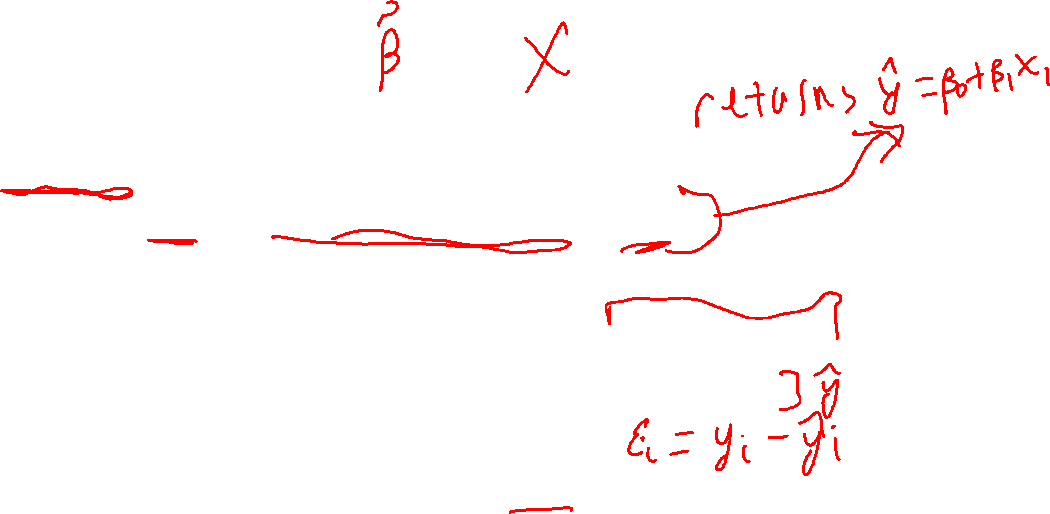 β̃ X
returns ŷ = β₀ + β₁ x₁
] ŷ
εᵢ = yᵢ - ŷᵢ